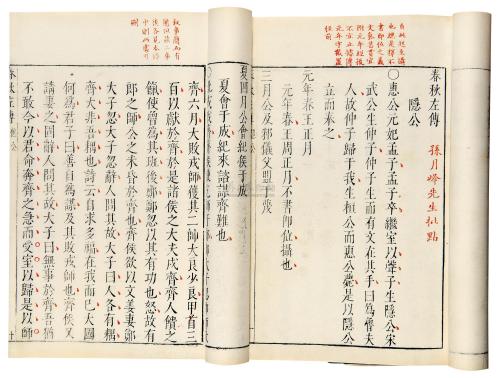 春秋左傳 孫月峰先生批點
隱公
〇惠公元妃孟子孟子卒繼室以聲子生隱公宋
武公生仲子仲子生而有文在其手曰爲魯夫
人故仲子歸于我生桓公而惠公薨是以隱公
立而奉之
元年春王正月
元年春王周正月不書卽位攝也
三月公及邾儀父盟于蔑
夏四月公會紀侯于成
夏會于成紀來諮謀齊難也
齊六月大敗戎師獲其二帥大良少良甲首三
百以獻於齊於是諸侯之大夫戍齊齊人饋之
餼使魯爲其班後鄭鄭忽以其有功也怒故有
郎之師公之未昏於齊也齊侯欲以文姜妻鄭
大子忽大子忽辭人問其故大子曰人各有耦
齊大非吾耦也詩云自求多福在我而已大國
何爲君子曰善自爲謀及其敗戎師也齊侯又
請妻之固辭人問其故大子曰無事於齊吾猶
不敢今以君命奔齊之急而受室以歸是以師